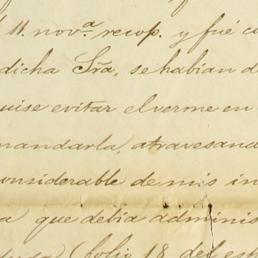 11. nov.ª recop. y fué
dicha Sra, se habian
evitar el verme en
mandarla, atravesand
considerable de mis in
que debia adminis
(folio 18 del